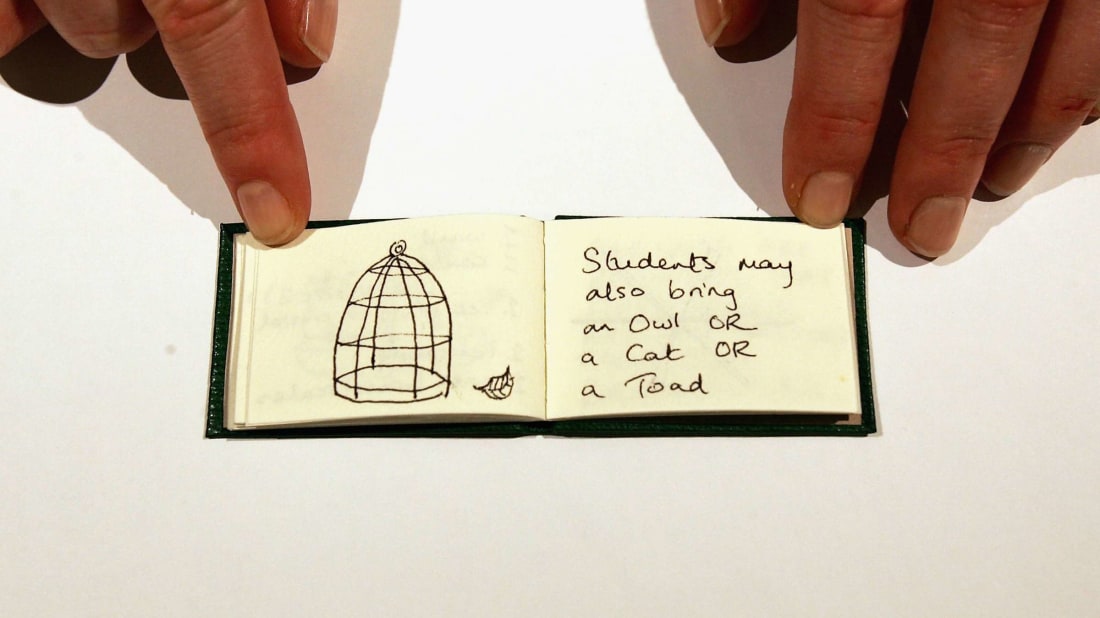 Students may
also bring
an Owl OR
a Cat OR
a Toad